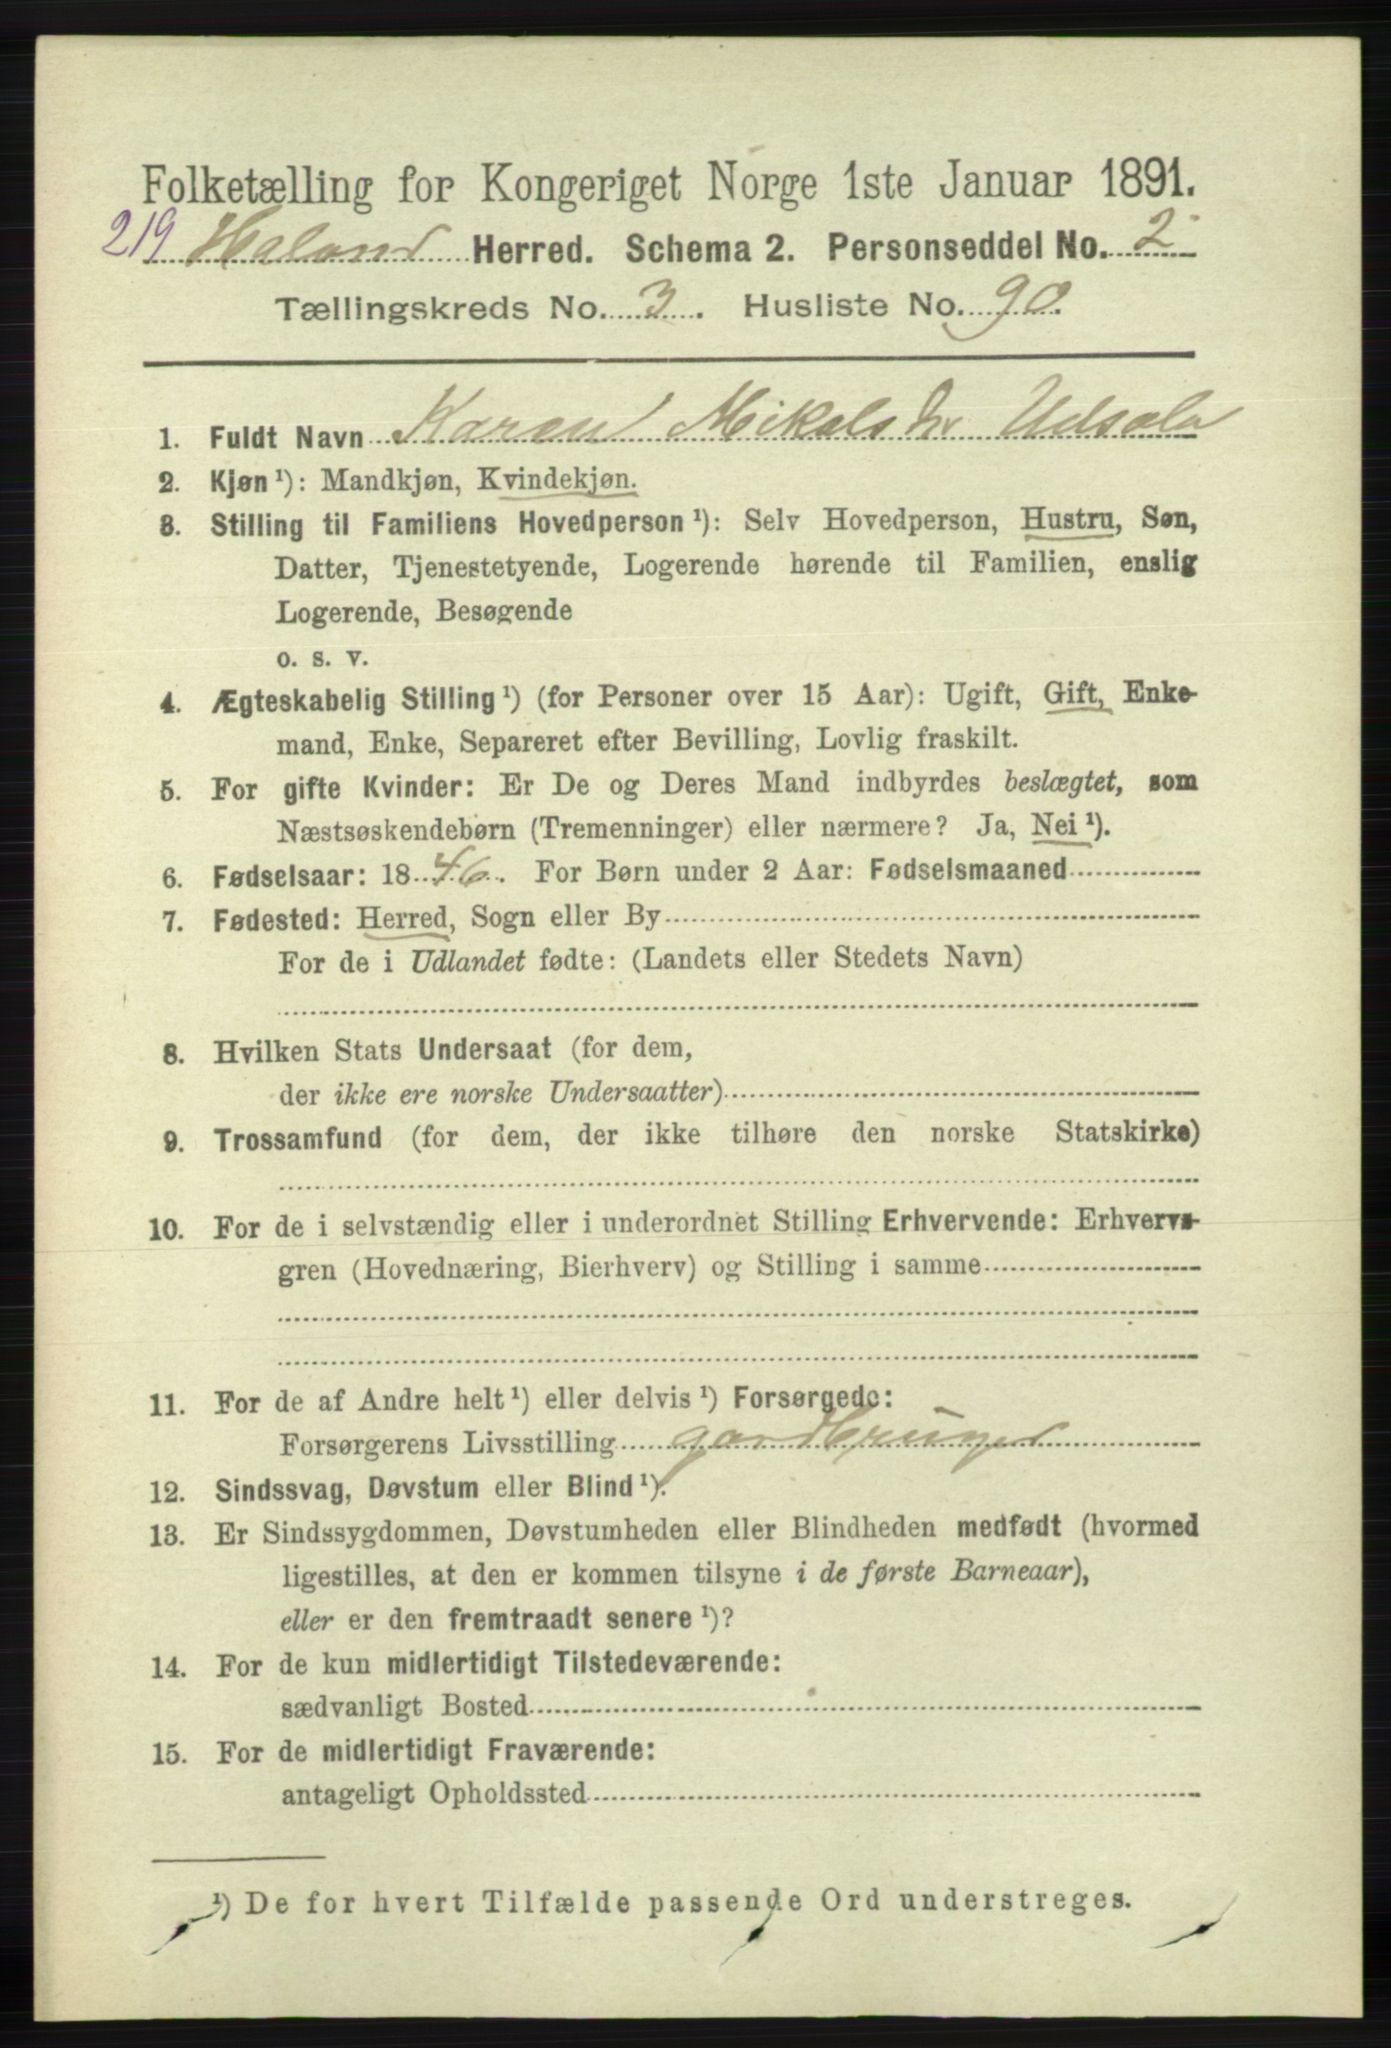 Folketælling for Kongeriget Norge 1ste Januar 1891.
219 Haland Herred. Schema 2. Personseddel No. 2
Tællingskreds No. 3. Husliste No. 90.
1. Fuldt Navn Karen Mikalsdr Udsola
2. Kjøn ¹): Mandkjøn, Kvindekjøn.
3. Stilling til Familiens Hovedperson ¹): Selv Hovedperson, Hustru, Søn,
Datter, Tjenestetyende, Logerende hørende til Familien, enslig
Logerende, Besøgende
o. s. v.
4. Ægteskabelig Stilling ¹) (for Personer over 15 Aar): Ugift, Gift, Enke-
mand, Enke, Separeret efter Bevilling, Lovlig fraskilt.
5. For gifte Kvinder: Er De og Deres Mand indbyrdes beslægtet, som
Næstsøskendebørn (Tremenninger) eller nærmere? Ja, Nei ¹).
6. Fødselsaar: 1846. For Børn under 2 Aar: Fødselsmaaned
7. Fødested: Herred, Sogn eller By
For de i Udlandet fødte: (Landets eller Stedets Navn)
8. Hvilken Stats Undersaat (for dem,
der ikke ere norske Undersaatter)
9. Trossamfund (for dem, der ikke tilhøre den norske Statskirke)
10. For de i selvstændig eller i underordnet Stilling Erhvervende: Erhvervs-
gren (Hovednæring, Bierhverv) og Stilling i samme
11. For de af Andre helt ¹) eller delvis ¹) Forsørgede:
Forsørgerens Livsstilling gardbruger
12. Sindssvag, Døvstum eller Blind ¹).
13. Er Sindssygdommen, Døvstumheden eller Blindheden medfødt (hvormed
ligestilles, at den er kommen tilsyne i de første Barneaar),
eller er den fremtraadt senere ¹)?
14. For de kun midlertidigt Tilstedeværende:
sædvanligt Bosted
15. For de midlertidigt Fraværende:
antageligt Opholdssted
¹) De for hvert Tilfælde passende Ord understreges.